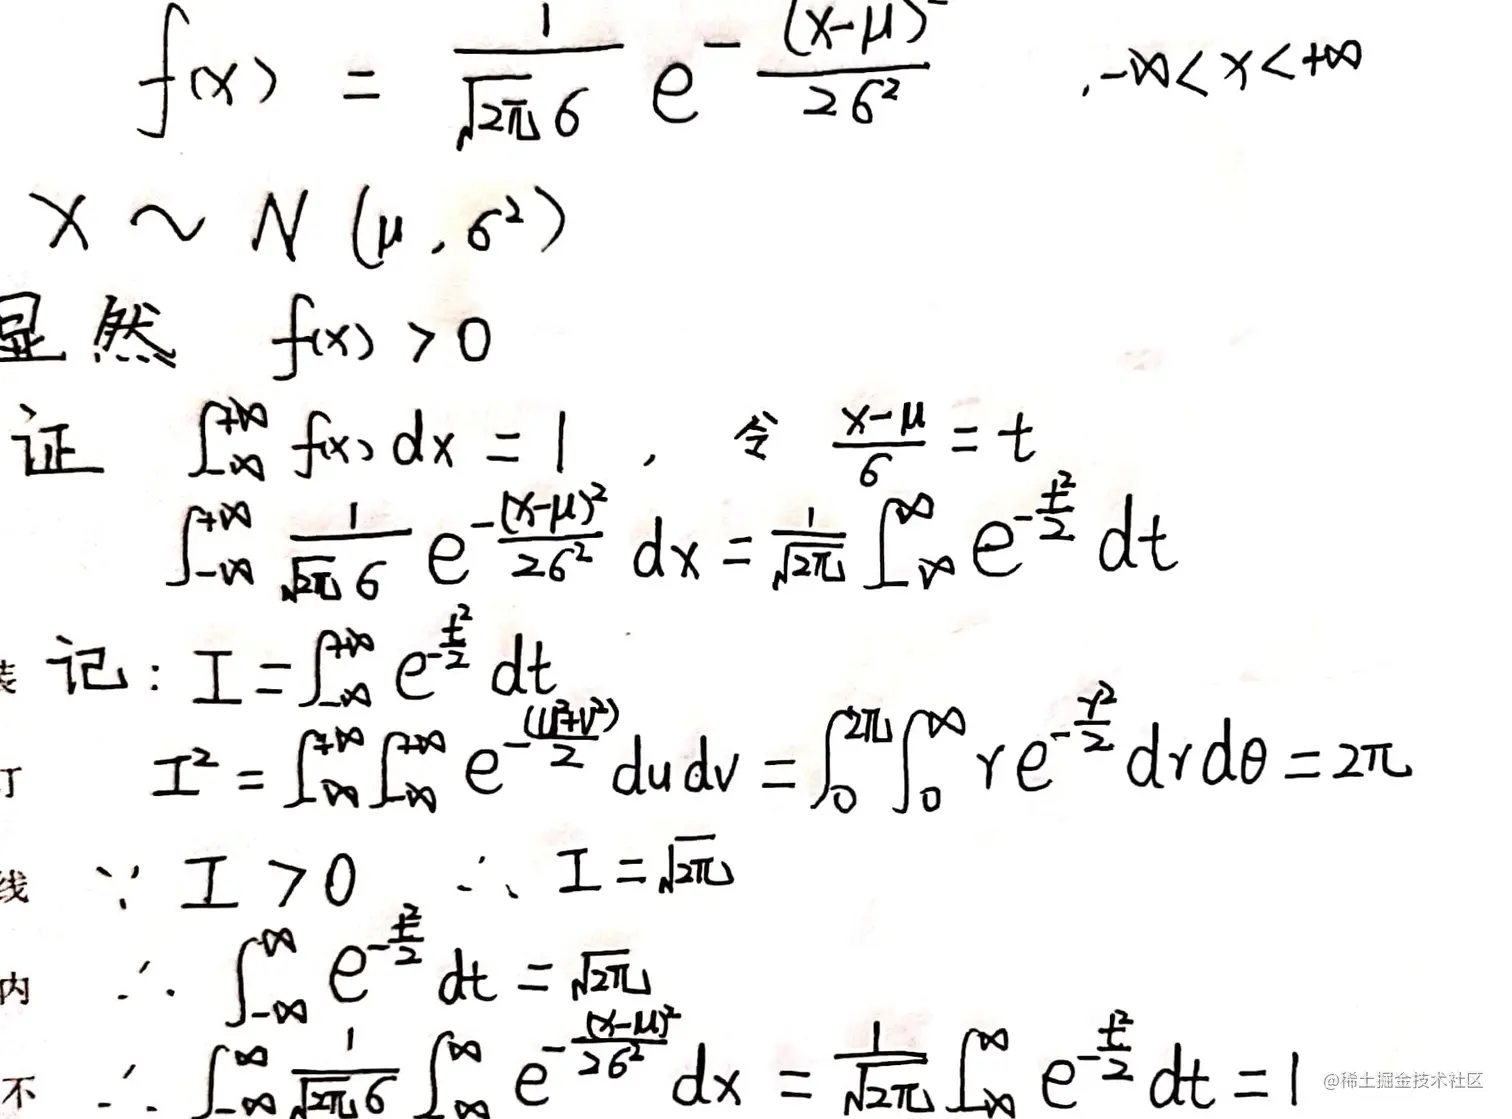 f(x) = \frac{1}{\sqrt{2π}σ} e^{-\frac{(x-μ)^2}{2σ^2}} , -∞<x<+∞
X ~ N (μ, σ²)
显然 f(x) > 0
证 \int_{-∞}^{+∞} f(x) dx = 1 , 令 \frac{x-μ}{σ} = t
\int_{-∞}^{+∞} \frac{1}{\sqrt{2π}σ} e^{-\frac{(x-μ)^2}{2σ^2}} dx = \frac{1}{\sqrt{2π}} \int_{-∞}^{∞} e^{-\frac{t^2}{2}} dt
装 记: I = \int_{-∞}^{+∞} e^{-\frac{t^2}{2}} dt
订 I² = \int_{-∞}^{+∞} \int_{-∞}^{+∞} e^{-\frac{(u^2+v^2)}{2}} du dv = \int_{0}^{2π} \int_{0}^{∞} r e^{-\frac{r^2}{2}} dr dθ = 2π
线 ∵ I > 0 ∴ I = \sqrt{2π}
内 ∴ \int_{-∞}^{∞} e^{-\frac{t^2}{2}} dt = \sqrt{2π}
不 ∴ \int_{-∞}^{∞} \frac{1}{\sqrt{2π}σ} \int_{-∞}^{∞} e^{-\frac{(x-μ)^2}{2σ^2}} dx = \frac{1}{\sqrt{2π}} \int_{-∞}^{∞} e^{-\frac{t^2}{2}} dt = 1
@稀土掘金技术社区